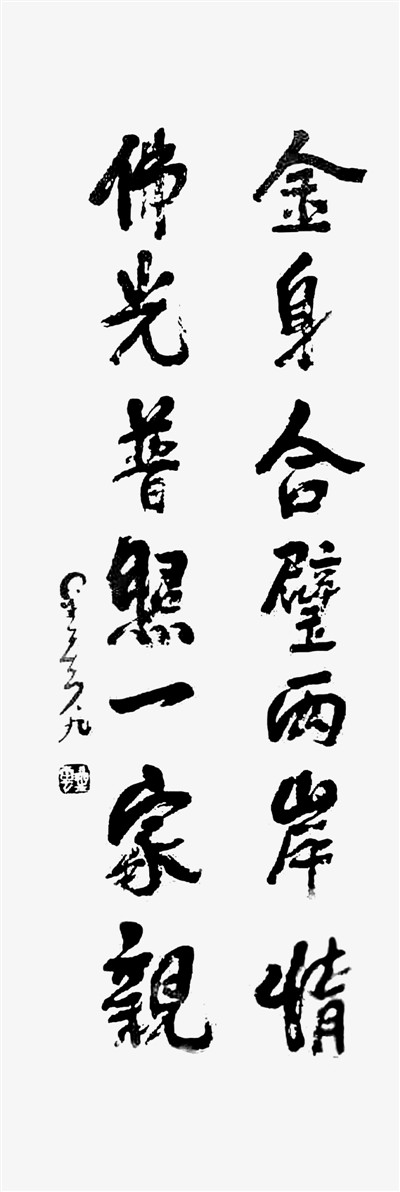 金身合璧两岸情
佛光普照一家親
星雲 九